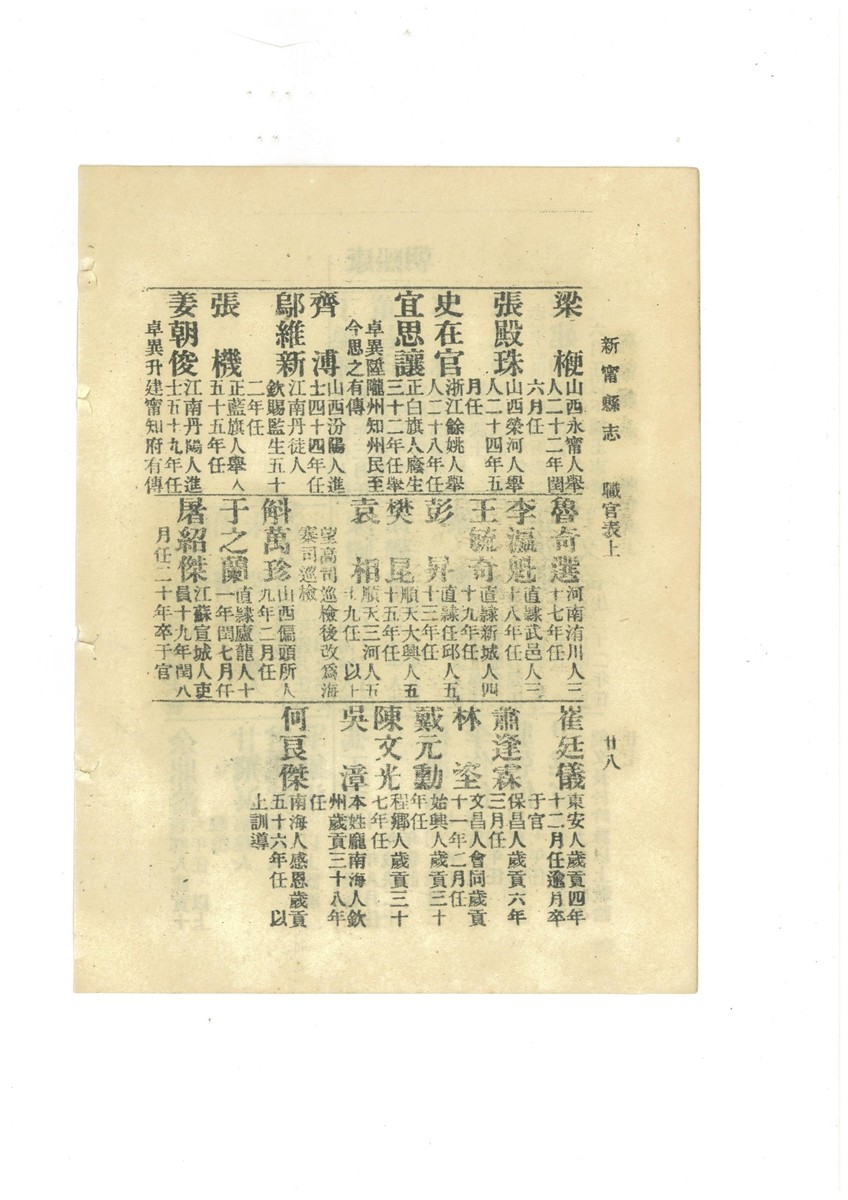 新甯縣志
職官表上
廿八
梁楩
山西永甯人舉
人二十二年閏
六月任
張殿珠
山西榮河人舉
人二十四年五
月任
史在官
浙江餘姚人舉
人二十八年任
宜思讓
正白旗人廢生
三十二年任舉
卓異陞隴州知州民至
今思之有傳
齊溥
山西汾陽人進
士四十四年任
鄔維新
江南丹徒人
欽賜監生五十
二年任
張機
正藍旗人舉人
五十五年任
姜朝俊
江南丹陽人進
士五十九年任
卓異升建甯知府有傳
魯奇選
河南洧川人三
十七年任
李瀛魁
直隷武邑人三
十八年任
王毓奇
直隷新城人四
十九年任
彭昇
直隷任邱人五
十三年任
樊昆
順天大興人五
十五年任
袁相
順天三河人五
十九任 以上
望高司巡檢後改爲海
寨司巡檢
斛萬珍
山西偏頭所人
九年二月任
于之蘭
直隷廬龍人十
一年閏七月任
屠紹傑
江蘇宣城人吏
員十九年閏八
月任二十年卒于官
崔廷儀
東安人歲貢四年
十二月任逾月卒
于官
蕭逢霖
保昌人歲貢六年
三月任
林
文昌人會同歲貢
十一年二月任
戴元勳
始興人歲貢三十
年任
陳文光
程鄉人歲貢三十
七年任
吳漳
本姓龐南海人欽
州歲貢三十八年
任
何艮傑
南海人感恩歲貢
五十六年任 以
上訓導